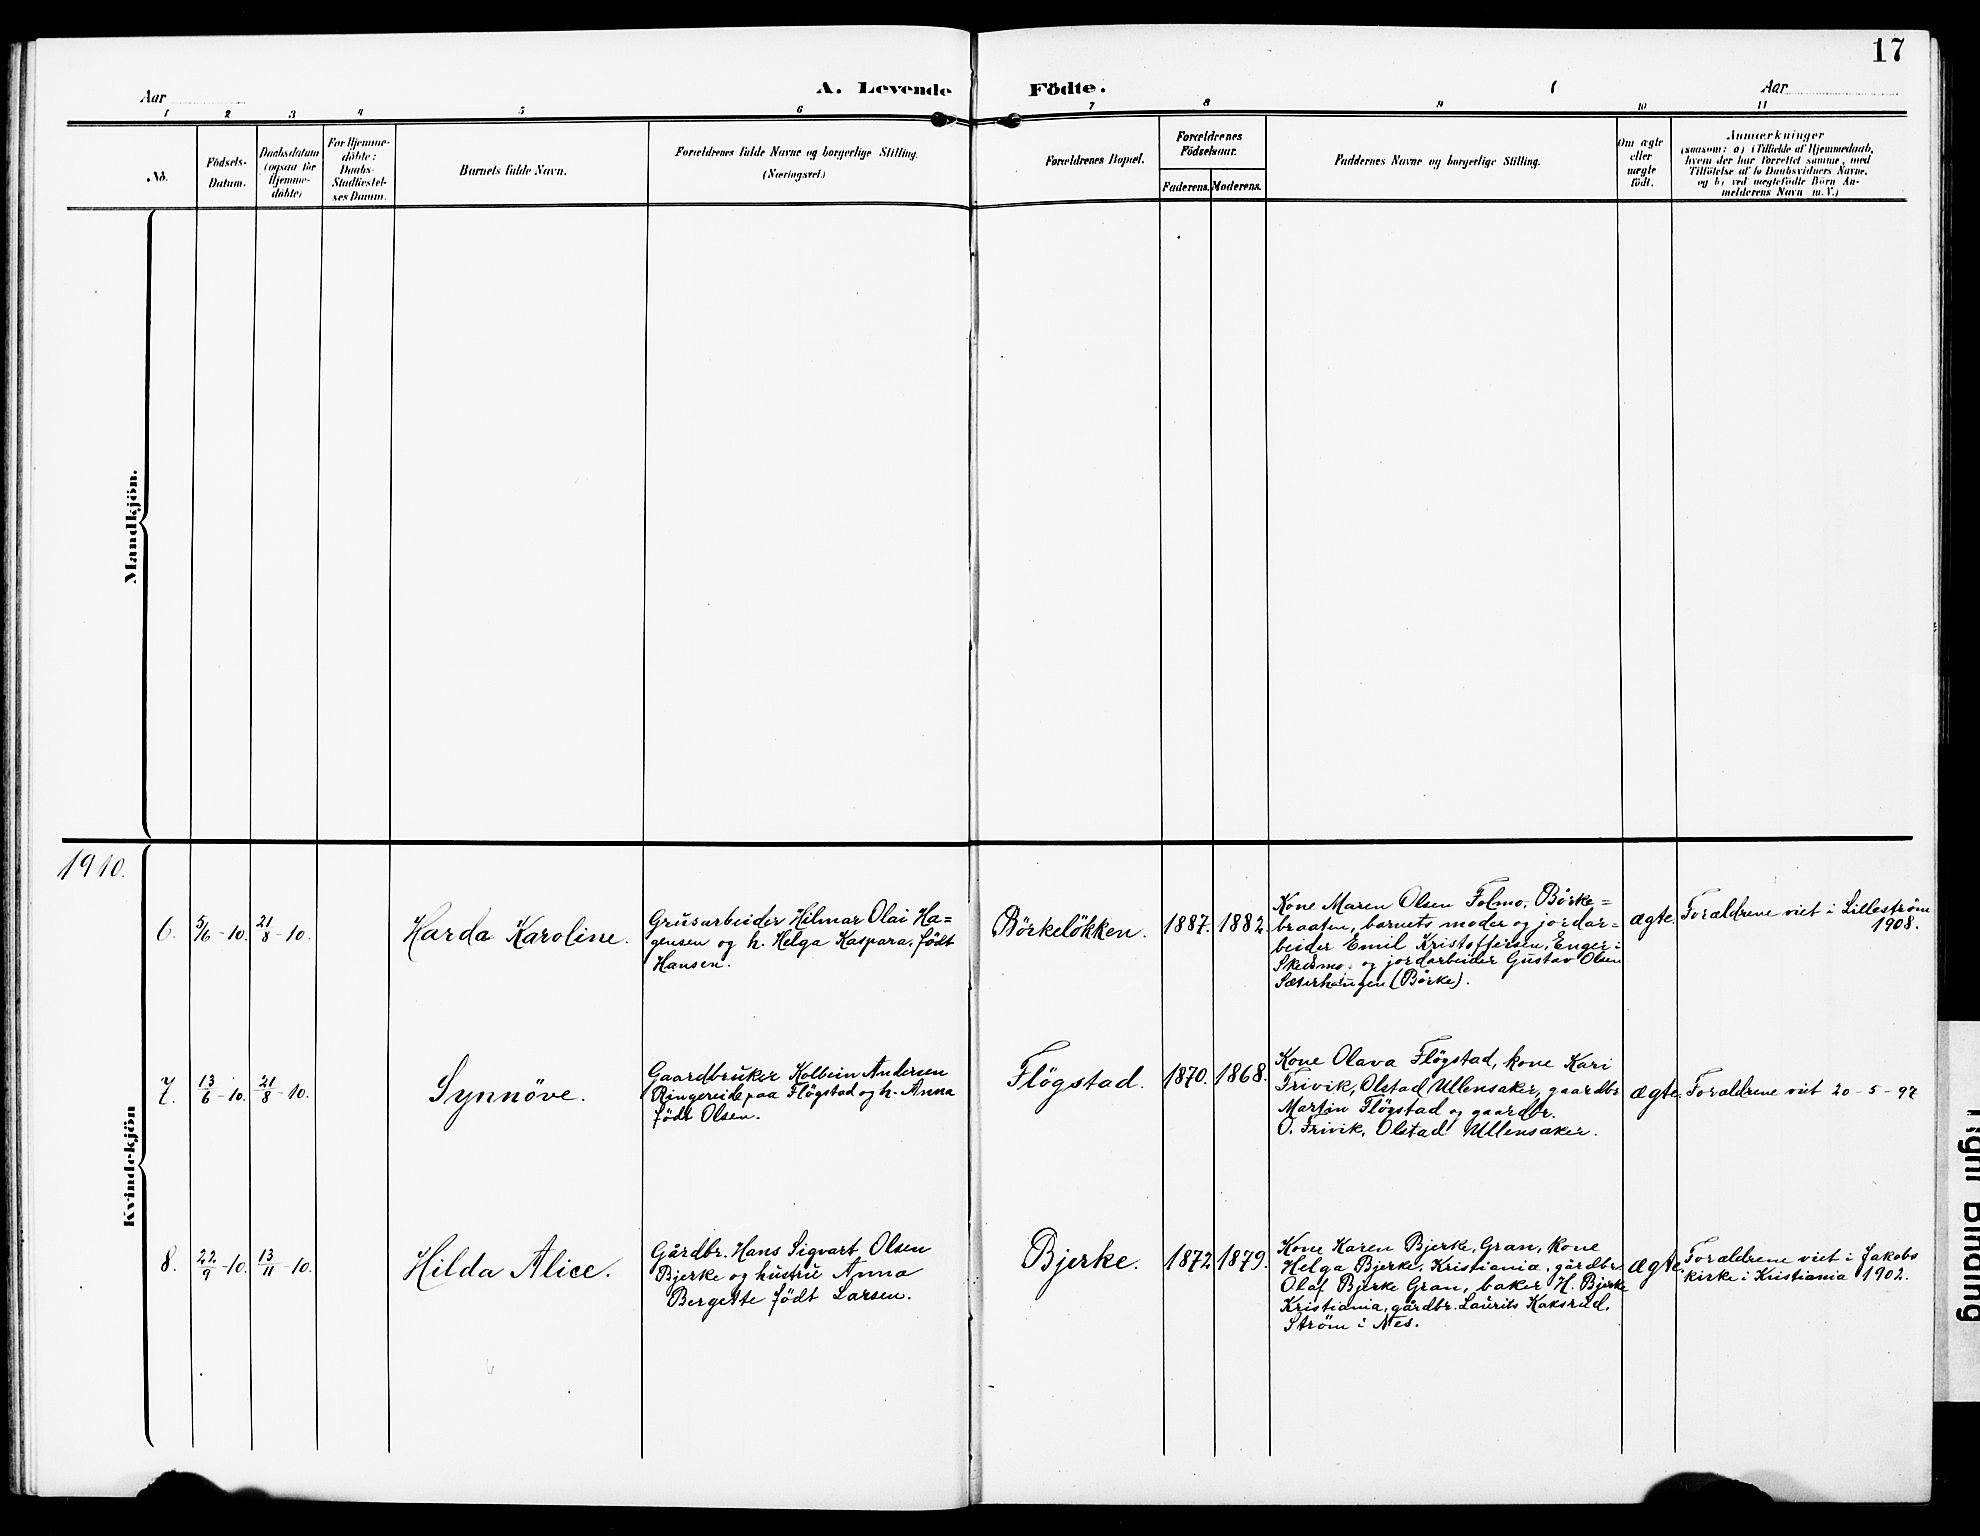 17
Aar
A. Levende Födte.
Aar
1 2 3 4 5 6 7 8 9 10 11
No.
Födsels-
Datum.
Daabsdatum
(ogsaa for
Hjemme-
döbte)
For Hjemme-
döbte:
Daabs-
Stadfæstel-
ses Datum.
Barnets fulde Navn.
Forældrenes fulde Navne og borgerlige Stilling.
(Næringsvei.)
Forældrenes Bopæl.
Forældrenes
Födselsaar.
Faderens. Moderens.
Faddernes Navne og borgerlige Stilling.
Om ægte
eller
uægte
födt.
Anmærkninger
(saasom: a) i Tilfælde af Hjemmedaab,
hvem der har forrettet samme, med
Tilföielse af to Daabsvidners Navne,
og b) ved uægtefödte Börn An-
melderens Navn m. V.)
Mandkjön.
1910.
Kvindekjön
6.
5/6 - 10.
21/8 - 10.
Harda Karoline.
Grusarbeider Hilmar Olai Ha=
gensen og h. Helga Kaspara, født
Hansen.
Börkelökken.
1887.
1882.
Kone Maren Olsen Folmo, Börke=
braaten, barnets moder og jordar=
beider Emil Kristoffersen, Enger i
Skedsmo, og jordarbeider Gustav Olsen
Sæterhaugen (Börke).
ægte.
Forældrene viet i Lilleström
1908.
7.
13/6 - 10.
21/8 - 10.
Synnöve.
Gaardbruker Kolbein Andersen
Ringereide paa Flögstad og h. Anna
født Olsen.
Flögstad.
1870.
1868.
Kone Olava Flögstad, kone Kari
Frivik, Olstad Ullensaker, gaardbr.
Martin Flögstad og gaardbr.
O. Frivik, Olstad Ullensaker.
ægte.
Forældrene viet 20-5-97
8.
22/9 - 10.
13/11 - 10.
Hilda Alice.
Gårdbr. Hans Sigvart Olsen
Bjerke og hustru Anna
Bergette født Larsen.
Bjerke.
1872
1879.
Kone Karen Bjerke, Gran, kone
Helga Bjerke, Kristiania, gårdbr.
Olaf Bjerke Gran, baker H. Bjerke
Kristiania, gårdbr. Laurits Kaksrud,
Ström i Nes.
ægte
Forældrene viet i Jakobs
kirke i Kristiania 1902.
Tight Binding